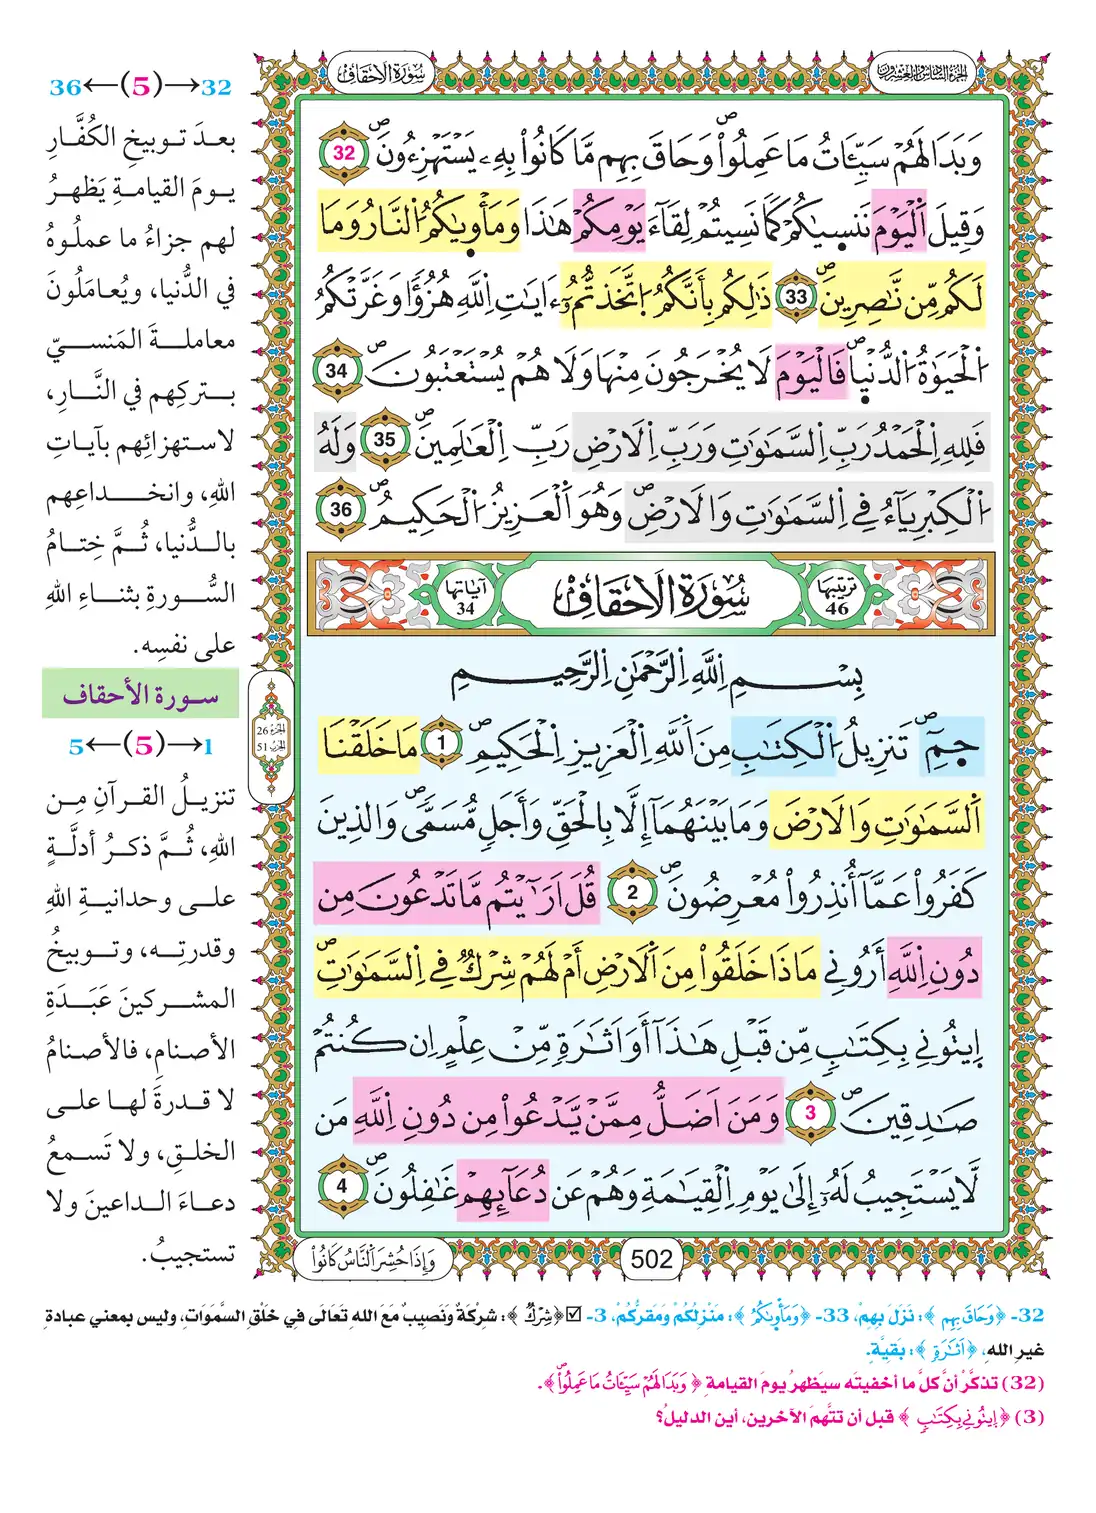 الجزء السادس والعشرون
سورة الأحقاف
وَبَدَا لَهُمْ سَيِّـَٔاتُ مَا عَمِلُوا۟ وَحَاقَ بِهِم مَّا كَانُوا۟ بِهِۦ يَسْتَهْزِءُونَ 32
وَقِيلَ اَ۬لْيَوْمَ نَنس۪يٰكُمْ كَمَا نَسِيتُمْ لِقَآءَ يَوْمِكُمْ هَٰذَا وَمَأْو۪يٰكُمُ اُ۬لنَّارُ وَمَا
لَكُم مِّن نَّٰصِرِينَ 33 ذَٰلِكُم بِأَنَّكُمُ اُ۪تَّخَذتُّمُۥٓ ءَايَٰتِ اِ۬للَّهِ هُزُؤًا وَغَرَّتْكُمُ
اُ۬لْحَيَوٰةُ اُ۬لدُّنْي۪ا فَالْيَوْمَ لَا يُخْرَجُونَ مِنْهَا وَلَا هُمْ يُسْتَعْتَبُونَ 34
فَلِلهِ اِ۬لْحَمْدُ رَبِّ اِ۬لسَّمَٰوَٰتِ وَرَبِّ اِ۬لَارْضِ رَبِّ اِ۬لْعَٰلَمِينَ 35 وَلَهُ
اُ۬لْكِبْرِيَآءُ فِي اِ۬لسَّمَٰوَٰتِ وَالَارْضِ وَهُوَ اَ۬لْعَزِيزُ اُ۬لْحَكِيمُ 36
ترتيبها 46 سورة الاحقاف آياتها 34
بِسْمِ اِ۬للَّهِ اِ۬لرَّحْمَٰنِ اِ۬لرَّحِيمِ
ج۪مِٓ تَنزِيلُ اُ۬لْكِتَٰبِ مِنَ اَ۬للَّهِ اِ۬لْعَزِيزِ اِ۬لْحَكِيمِ 1 مَا خَلَقْنَا
اَ۬لسَّمَٰوَٰتِ وَالَارْضَ وَمَا بَيْنَهُمَآ إِلَّا بِالْحَقِّ وَأَجَلٍ مُّسَمًّى وَالذِينَ
كَفَرُوا۟ عَمَّآ أُنذِرُوا۟ مُعْرِضُونَ 2 قُلَ اَرَٰٓيْتُم مَّا تَدْعُونَ مِن
دُونِ اِ۬للَّهِ أَرُونِي مَاذَا خَلَقُوا۟ مِنَ اَ۬لَارْضِ أَمْ لَهُمْ شِرْكٌ فِي اِ۬لسَّمَٰوَٰتِ
اِ۪يتُونِي بِكِتَٰبٍ مِّن قَبْلِ هَٰذَآ أَوَ اَثَٰرَةٍ مِّنْ عِلْمٍ اِن كُنتُمْ
صَٰدِقِينَ 3 وَمَنَ اَضَلُّ مِمَّنْ يَّدْعُوا۟ مِن دُونِ اِ۬للَّهِ مَن
لَّا يَسْتَجِيبُ لَهُۥٓ إِلَىٰ يَوْمِ اِ۬لْقِيَٰمَةِ وَهُمْ عَن دُعَآئِهِمْ غَٰفِلُونَ 4
502
وَإِذَا حُشِرَ اَ۬لنَّاسُ كَانُوا۟
36←(5)→32
بعدَ توبيخِ الكُفَّارِ
يومَ القيامةِ يَظهرُ
لهم جزاءُ ما عملُوهُ
في الدُّنيا، ويُعامَلُونَ
معاملةَ المَنسيِّ
بتركِهم في النَّارِ،
لاستهزائِهم بآياتِ
اللهِ، وانخداعِهم
بالدُّنيا، ثُمَّ خِتامُ
السُّورةِ بثناءِ اللهِ
على نفسِه.
سورة الأحقاف
5←(5)→1
تنزيلُ القرآنِ مِن
اللهِ، ثُمَّ ذكرُ أدلَّةٍ
على وحدانيةِ اللهِ
وقدرتِه، وتوبيخُ
المشركينَ عَبَدَةِ
الأصنامِ، فالأصنامُ
لا قدرةَ لها على
الخلقِ، ولا تَسمعُ
دعاءَ الداعينَ ولا
تستجيبُ.
الجزء 26
الحزب 51
32- ﴿وَحَاقَ بِهِم﴾: نَزَلَ بِهِمْ، 33- ﴿وَمَأْو۪يٰكُمُ﴾: مَنْزِلُكُمْ وَمَقَرُّكُمْ، 3- ☑﴿شِرْكٌ﴾: شِرْكَةٌ وَنَصِيبٌ مَعَ اللهِ تَعَالَى فِي خَلْقِ السَّمَوَاتِ، وليس بمعني عبادة
غيرِ الله، ﴿اَثَٰرَةٍ﴾: بَقِيَّةٍ.
(32) تذكَّرْ أنَّ كلَّ ما أخفيتَه سيَظهرُ يومَ القيامةِ ﴿وَبَدَا لَهُمْ سَيِّـَٔاتُ مَا عَمِلُوا۟﴾.
(3) ﴿اِ۪يتُونِي بِكِتَٰبٍ﴾ قبل أن تتَّهمَ الآخرين، أين الدليلُ؟